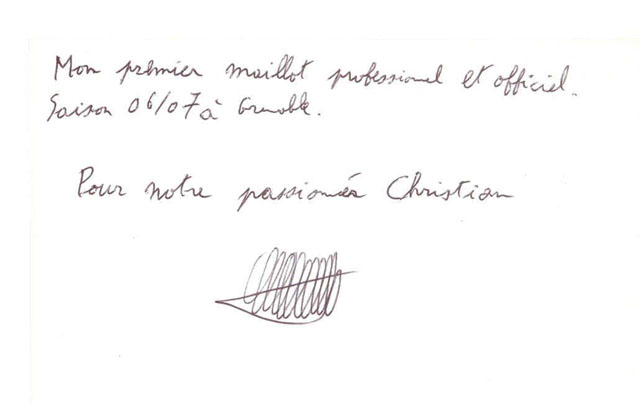 Mon premier maillot professionnel et officiel.
Saison 06/07 à Grenoble.
Pour notre passionnée Christian